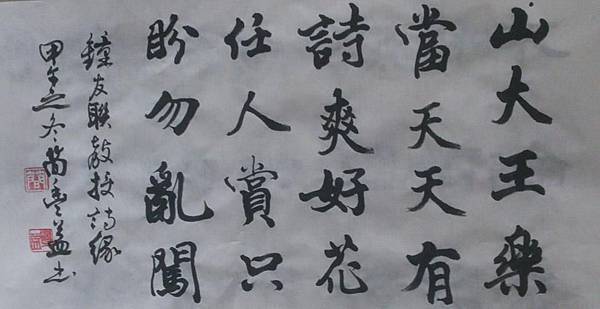 山大王樂
當天天有
詩爽好花
任人賞只
盼勿亂闖
鐘友聯教授詩緣
甲午之冬蕳豊益書